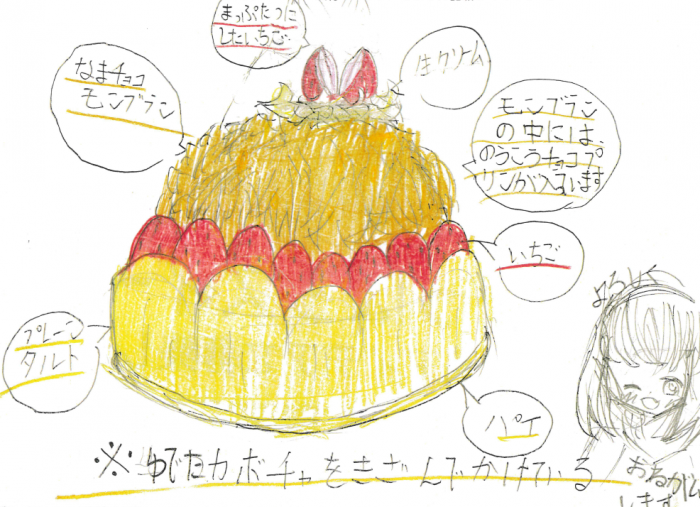 まっぷたつに
したいちご
生クリーム
なまチョコ
モンブラン
モンブラン
の中には、
のうこうチョコプ
リンが入っています
いちご
プレーン
タルト
パイ
よろしく
※ゆでたカボチャをきざんでかけている
おねがい
します